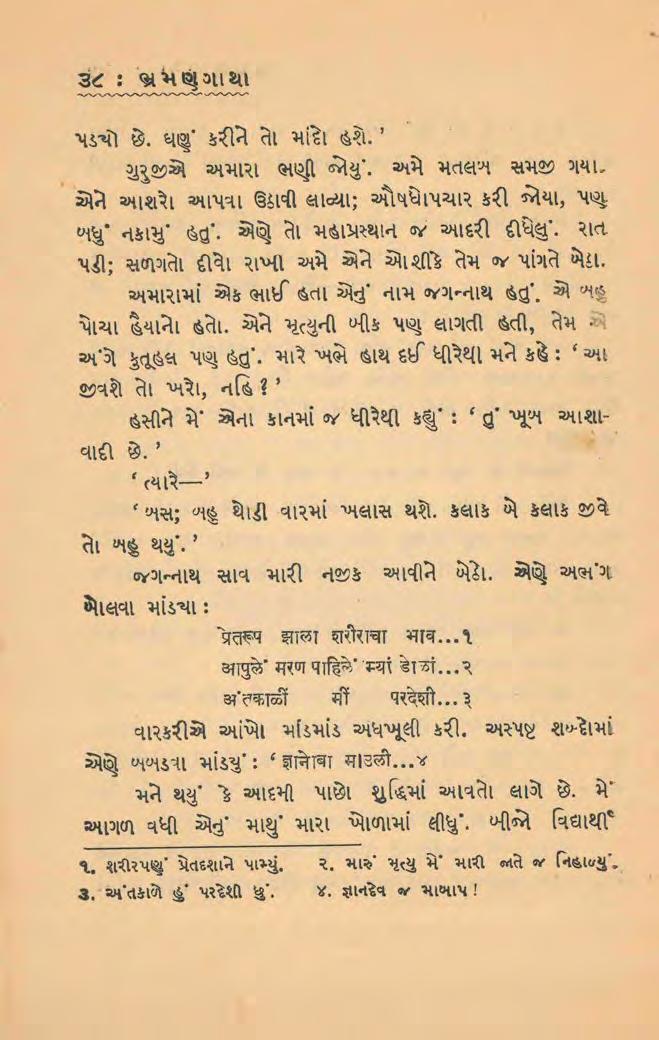 ૩૮ : ભ્રમણગાથા
પડ્યો છે. ઘણું કરીને તો માંદો હશે.’
ગુરુજીએ અમારા ભણી જોયું. અમે મતલબ સમજી ગયા.
એને આશરો આપવા ઉઠાવી લાવ્યા; ઔષધોપચાર કરી જોયા, પણ
બધું નકામું હતું. એણે તો મહાપ્રસ્થાન જ આદરી દીધેલું. રાત
પડી; સળગતો દીવો રાખી અમે એને ઓશીકે તેમ જ પાંગતે બેઠા.
અમારામાં એક ભાઈ હતા એનું નામ જગન્નાથ હતું. એ બહુ
પોચા હૈયાનો હતો. એને મૃત્યુની બીક પણ લાગતી હતી, તેમ એ
અંગે કુતૂહલ પણ હતું. મારે ખભે હાથ દઈ ધીરેથી મને કહે : ‘આ
જીવશે તો ખરો, નહિ ?’
હસીને મેં એના કાનમાં જ ધીરેથી કહ્યું : ‘તું ખૂબ આશા-
વાદી છે.’
‘ત્યારે—’
‘બસ; બહુ થોડી વારમાં ખલાસ થશે. કલાક બે કલાક જીવે
તો બહુ થયું.’
જગન્નાથ સાવ મારી નજીક આવીને બેઠો. એણે અભંગ
બોલવા માંડ્યા :
प्रेतरूप झाला शरीराचा भाव...१
आपुलें मरण पाहिलें म्यां डोळां...२
अंतकाळीं मीं परदेशी...३
વારકરીએ આંખો માંડમાંડ અધખૂલી કરી. અસ્પષ્ટ શબ્દોમાં
એણે બબડવા માંડ્યું : ‘ज्ञानोबा माउली...४
મને થયું કે આદમી પાછો શુદ્ધિમાં આવતો લાગે છે. મેં
આગળ વધી એનું માથું મારા ખોળામાં લીધું. બીજો વિદ્યાર્થી
૧. શરીરપણું પ્રેતદશાને પામ્યું. ૨. મારું મૃત્યુ મેં મારી જાતે જ નિહાળ્યું.
૩. અંતકાળે હું પરદેશી છું. ૪. જ્ઞાનદેવ જ માબાપ !